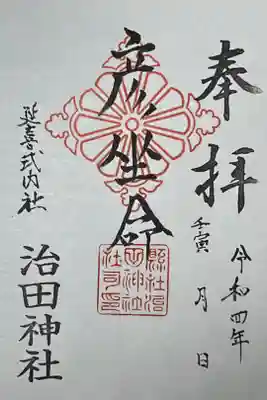 奉拝
令和四年
壬寅 月 日
彦坐命
縣社治
田神社
社司印
延喜式内社
治田神社